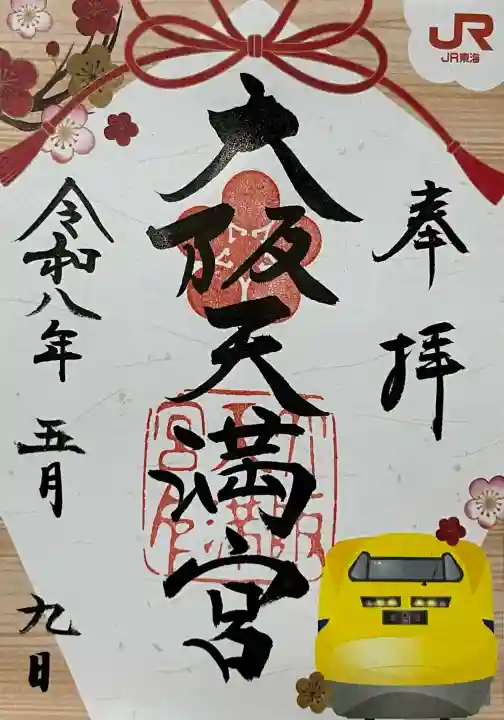 JR
JR東海
奉拝
大阪天満宮
令和八年五月九日